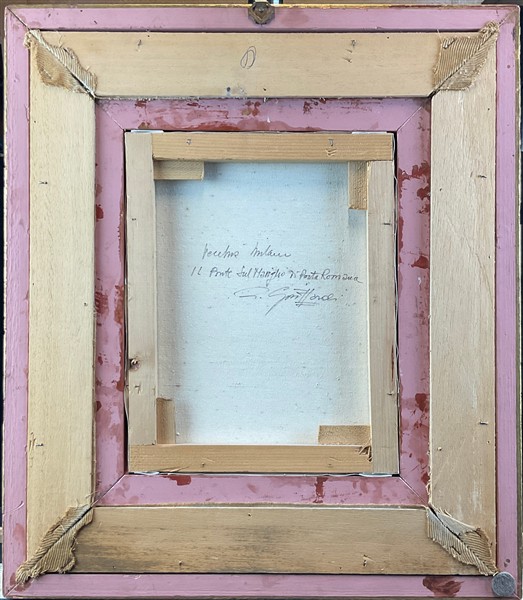 Vecchia Milano
Il Ponte sul Naviglio di Porta Romana